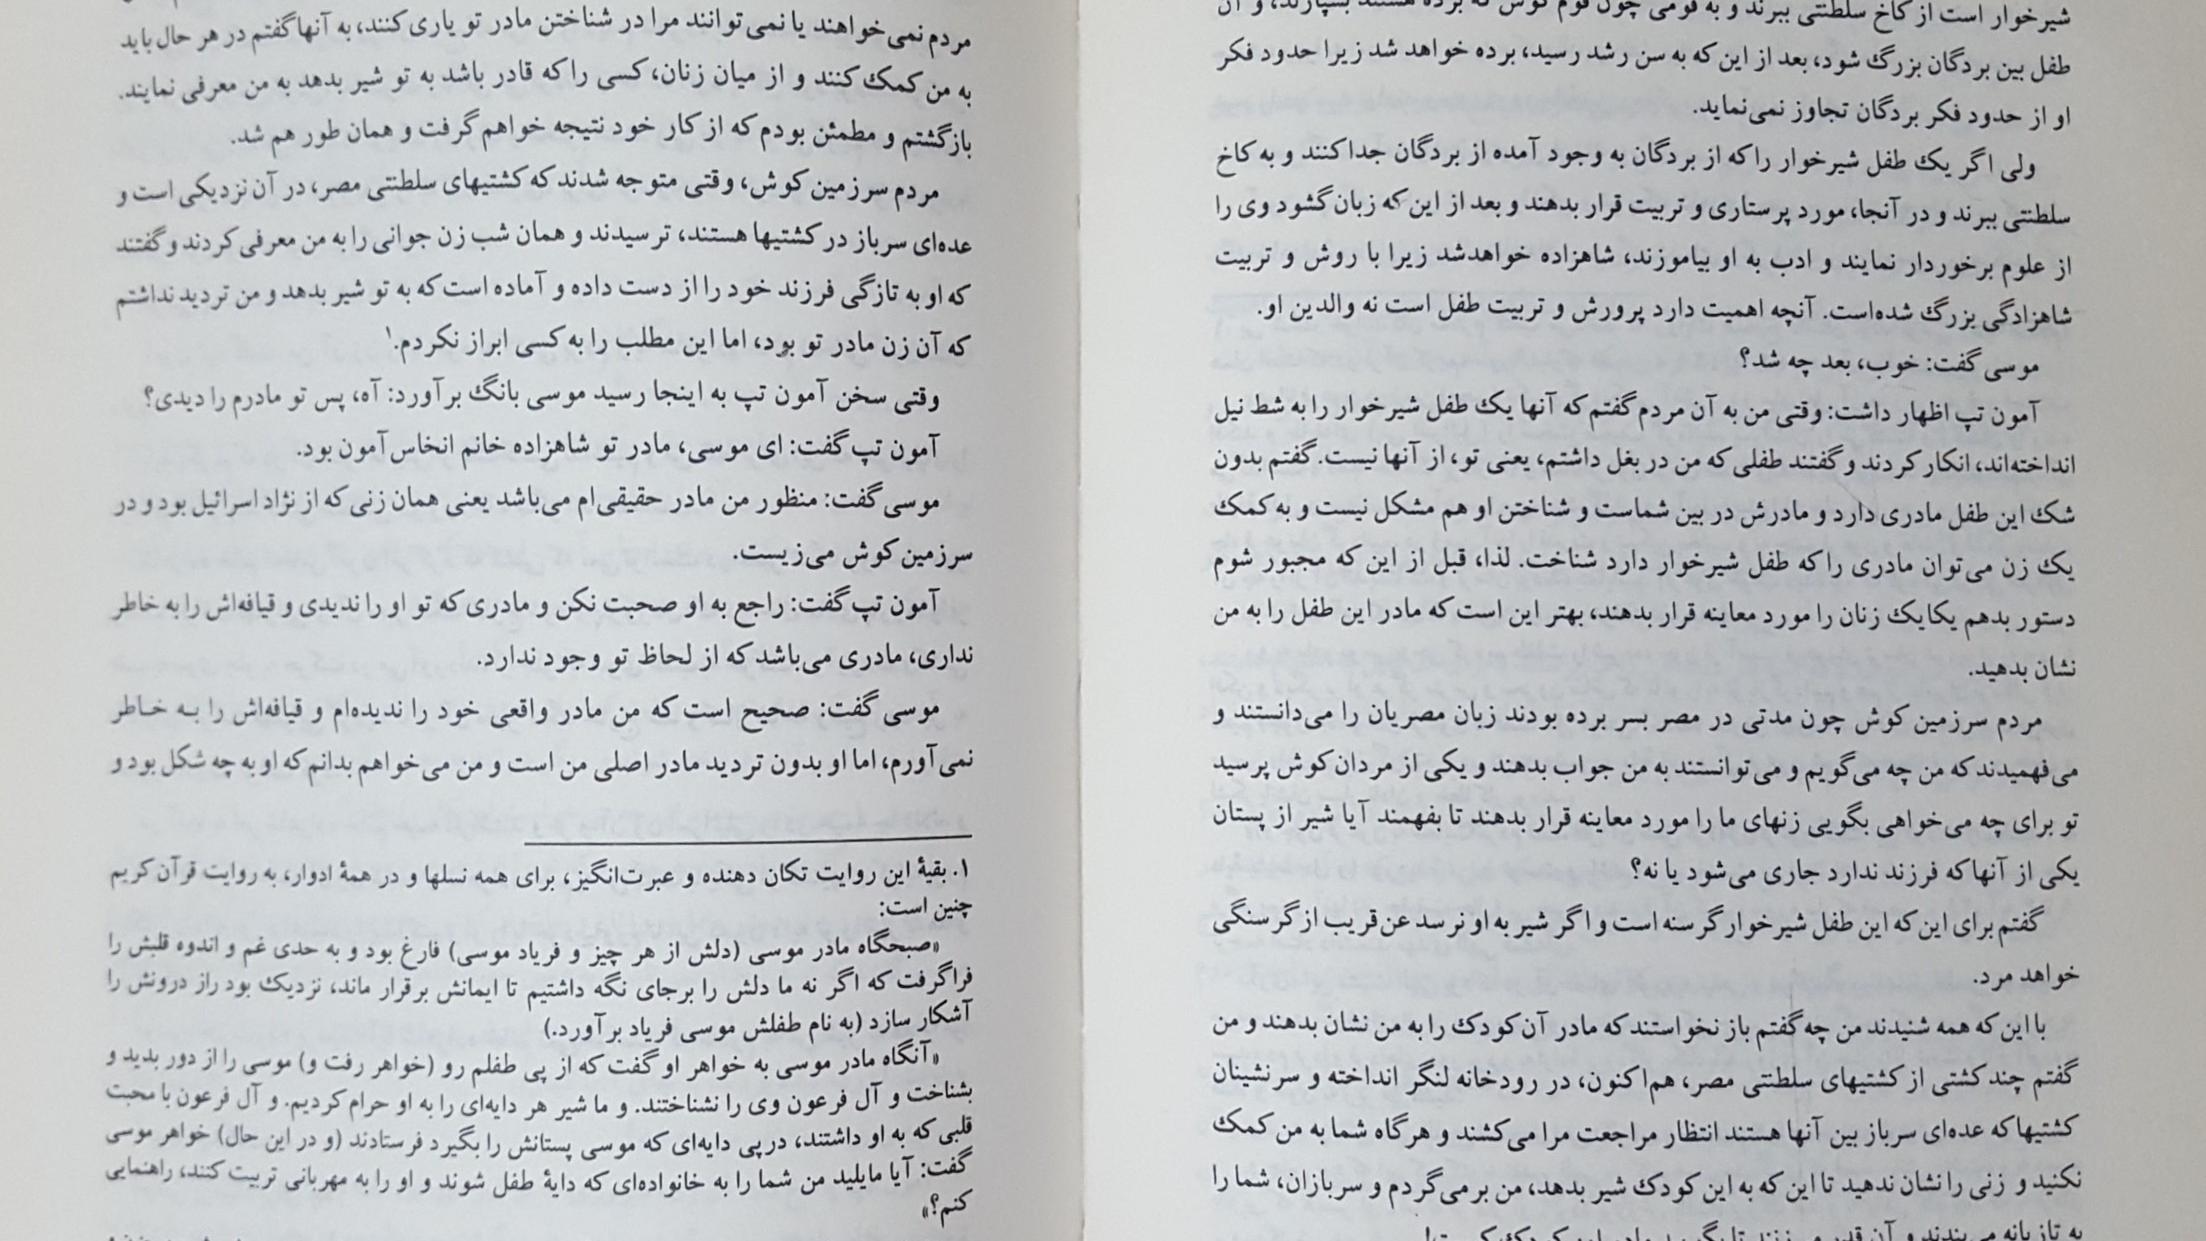 شیرخوار است از کاخ سلطنتی ببرند و به قومی چون قوم کوش که برده هستند بسپارند، و آن
طفل بین بردگان بزرگ شود، بعد از این که به سن رشد رسید، برده خواهد شد زیرا حدود فکر
او از حدود فکر بردگان تجاوز نمی‌نماید.
ولی اگر یک طفل شیرخوار را که از بردگان به وجود آمده از بردگان جدا کنند و به کاخ
سلطنتی ببرند و در آنجا، مورد پرستاری و تربیت قرار بدهند و بعد از این که زبان گشود وی را
از علوم برخوردار نمایند و ادب به او بیاموزند، شاهزاده خواهدشد زیرا با روش و تربیت
شاهزادگی بزرگ شده‌است. آنچه اهمیت دارد پرورش و تربیت طفل است نه والدین او.
موسی گفت: خوب، بعد چه شد؟
آمون تپ اظهار داشت: وقتی من به آن مردم گفتم که آنها یک طفل شیرخوار را به شط نیل
انداخته‌اند، انکار کردند و گفتند طفلی که من در بغل داشتم، یعنی تو، از آنها نیست. گفتم بدون
شک این طفل مادری دارد و مادرش در بین شماست و شناختن او هم مشکل نیست و به کمک
یک زن می‌توان مادری را که طفل شیرخوار دارد شناخت. لذا، قبل از این که مجبور شوم
دستور بدهم یکایک زنان را مورد معاینه قرار بدهند، بهتر این است که مادر این طفل را به من
نشان بدهید.
مردم سرزمین کوش چون مدتی در مصر بسر برده بودند زبان مصریان را می‌دانستند و
می‌فهمیدند که من چه می‌گویم و می‌توانستند به من جواب بدهند و یکی از مردان کوش پرسید
تو برای چه می‌خواهی بگویی زنهای ما را مورد معاینه قرار بدهند تا بفهمند آیا شیر از پستان
یکی از آنها که فرزند ندارد جاری می‌شود یا نه؟
گفتم برای این که این طفل شیرخوار گرسنه است و اگر شیر به او نرسد عن‌قریب از گرسنگی
خواهد مرد.
با این که همه شنیدند من چه گفتم باز نخواستند که مادر آن کودک را به من نشان بدهند و من
گفتم چند کشتی از کشتیهای سلطنتی مصر، هم‌اکنون، در رودخانه لنگر انداخته و سرنشینان
کشتیها که عده‌ای سرباز بین آنها هستند انتظار مراجعت مرا می‌کشند و هرگاه شما به من کمک
نکنید و زنی را نشان ندهید تا این که به این کودک شیر بدهد، من برمی‌گردم و سربازان، شما را
به تازیانه می‌بندند و آن قدر می‌زنند تا
مردم نمی‌خواهند یا نمی‌توانند مرا در شناختن مادر تو یاری کنند، به آنها گفتم در هر حال باید
به من کمک کنند و از میان زنان، کسی را که قادر باشد به تو شیر بدهد به من معرفی نمایند.
بازگشتم و مطمئن بودم که از کار خود نتیجه خواهم گرفت و همان طور هم شد.
مردم سرزمین کوش، وقتی متوجه شدند که کشتیهای سلطنتی مصر، در آن نزدیکی است و
عده‌ای سرباز در کشتیها هستند، ترسیدند و همان شب زن جوانی را به من معرفی کردند و گفتند
که او به تازگی فرزند خود را از دست داده و آماده است که به تو شیر بدهد و من تردید نداشتم
که آن زن مادر تو بود، اما این مطلب را به کسی ابراز نکردم.۱
وقتی سخن آمون تپ به اینجا رسید موسی بانگ برآورد: آه، پس تو مادرم را دیدی؟
آمون تپ گفت: ای موسی، مادر تو شاهزاده خانم انخاس آمون بود.
موسی گفت: منظور من مادر حقیقی‌ام می‌باشد یعنی همان زنی که از نژاد اسرائیل بود و در
سرزمین کوش می‌زیست.
آمون تپ گفت: راجع به او صحبت نکن و مادری که تو او را ندیدی و قیافه‌اش را به خاطر
نداری، مادری می‌باشد که از لحاظ تو وجود ندارد.
موسی گفت: صحیح است که من مادر واقعی خود را ندیده‌ام و قیافه‌اش را به خاطر
نمی‌آورم، اما او بدون تردید مادر اصلی من است و من می‌خواهم بدانم که او به چه شکل بود و
۱. بقیهٔ این روایت تکان دهنده و عبرت‌انگیز، برای همه نسلها و در همهٔ ادوار، به روایت قرآن کریم
چنین است:
«صبحگاه مادر موسی (دلش از هر چیز و فریاد موسی) فارغ بود و به حدی غم و اندوه قلبش را
فراگرفت که اگر نه ما دلش را برجای نگه داشتیم تا ایمانش برقرار ماند، نزدیک بود راز درونش را
آشکار سازد (به نام طفلش موسی فریاد برآورد.)
«آنگاه مادر موسی به خواهر او گفت که از پی طفلم رو (خواهر رفت و) موسی را از دور بدید و
بشناخت و آل فرعون وی را نشناختند. و ما شیر هر دایه‌ای را به او حرام کردیم. و آل فرعون با محبت
قلبی که به او داشتند، درپی دایه‌ای که موسی پستانش را بگیرد فرستادند (و در این حال) خواهر موسی
گفت: آیا مایلید من شما را به خانواده‌ای که دایهٔ طفل شوند و او را به مهربانی تربیت کنند، راهنمایی
کنم؟»